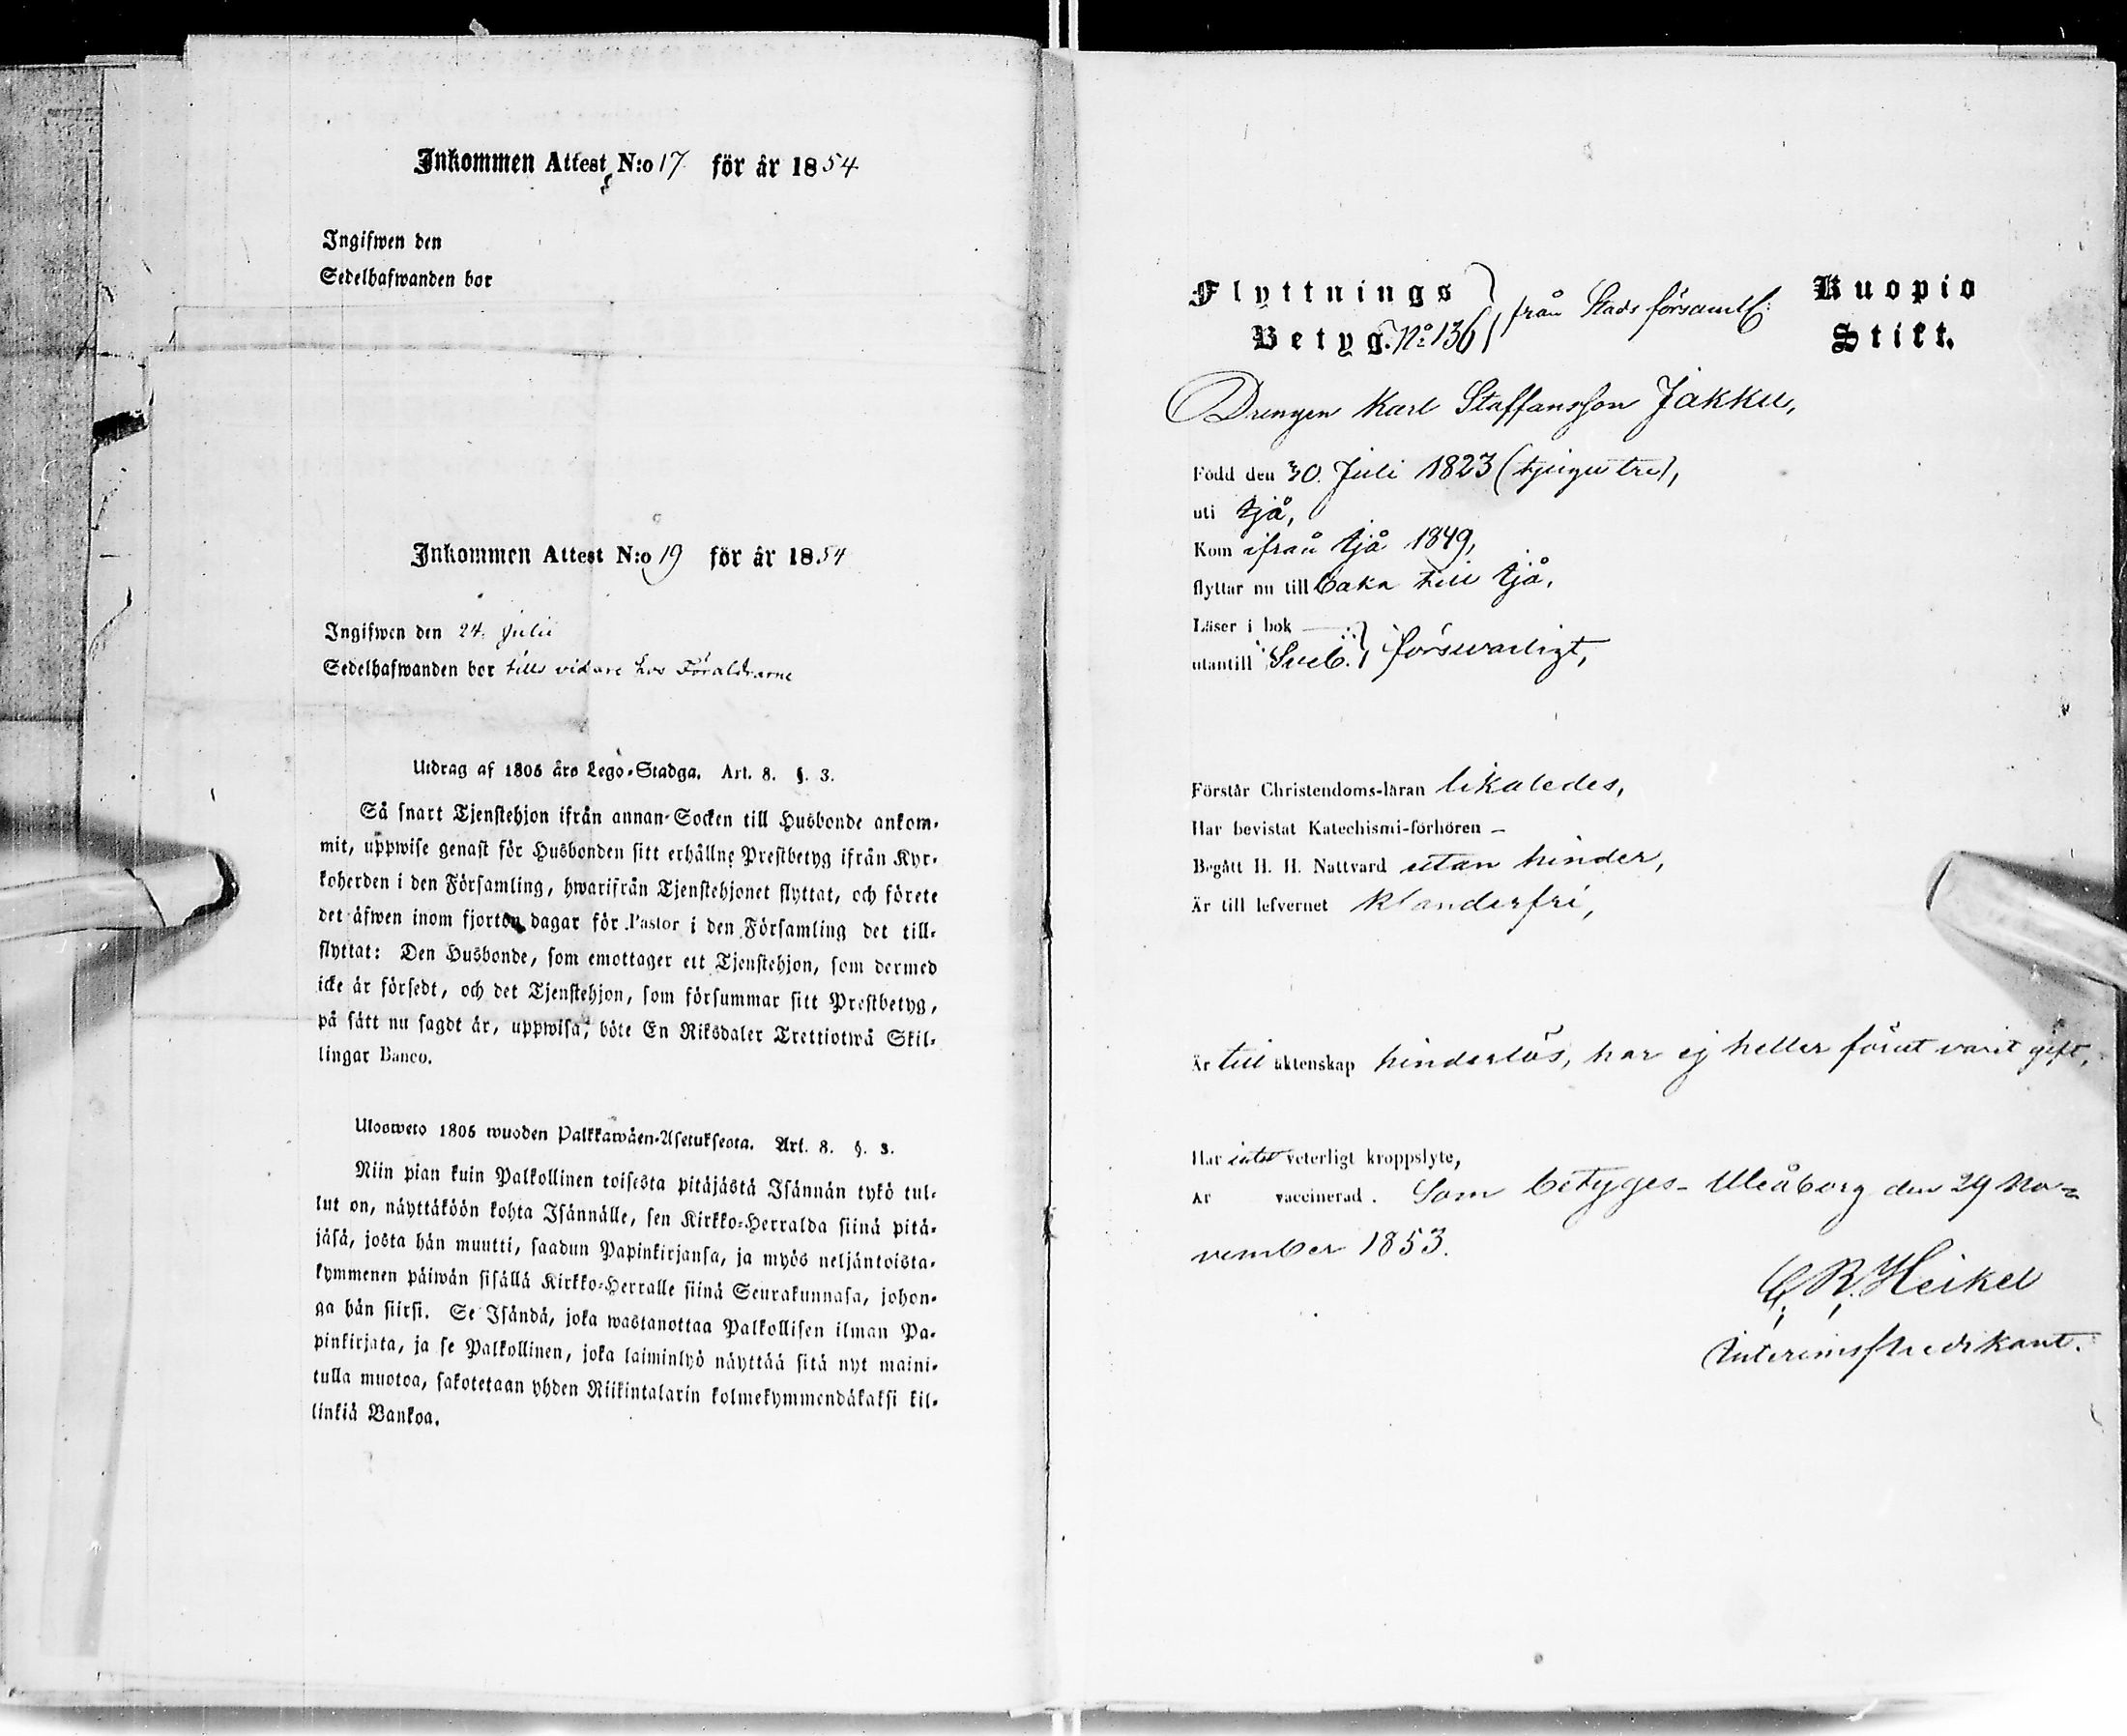 Inkommen Attest N:o 17 för år 1854
Ingifwen den
Sedelhafwanden bor
Inkommen Attest N:o 19 för år 1854
Ingifwen den 24. Julii
Sedelhafwanden bor tills vidare hos Föräldrarne
Utdrag af 1805 års Lego-Stadga. Art. 8. §. 3.
Så snart Tjenstehjon ifrån annan Socken till Husbonde ankom-
mit, uppwise genast för Husbonden sitt erhållne Prestbetyg ifrån Kyr-
koherden i den Församling, hwarifrån Tjenstehjonet flyttat, och förete
det äfwen inom fjorton dagar för Pastor i den Församling det till-
flyttat: Den Husbonde, som emottager ett Tjenstehjon, som dermed
icke är försedt, och det Tjenstehjon, som försummar sitt Prestbetyg,
på sätt nu sagdt är, uppwisa, böte En Riksdaler Trettiotwå Skil-
lingar Banco.
Ulosweto 1805 wuoden Palkkawäen-Asetuksesta. Art. 8. §. 3.
Niin pian kuin Palkollinen toisesta pitäjästä Isännän tykö tul-
lut on, näyttäköön kohta Isännälle, sen Kirkko-Herralda siinä pitä-
jäsä, josta hän muutti, saadun Papinkirjansa, ja myös neljäntoista-
kymmenen päiwän sisällä Kirkko-Herralle siinä Seurakunnasa, johon-
ga hän siirsi. Se Isändä, joka wastanottaa Palkollisen ilman Pa-
pinkirjata, ja se Palkollinen, joka laiminlyö näyttää sitä nyt maini-
tulla muotoa, sakotetaan yhden Riikintalarin kolmekymmendäkaksi kil-
linkiä Bankoa.
Flyttnings
Betyg. No 136, från Stads församl: Kuopio
Stift.
Drengen Karl Staffansson Jakku,
Född den 30. Juli 1823 (tjugu tre),
uti Ijå,
Kom ifrån Ijå 1849,
flyttar nu till baka till Ijå.
Läser i bok
utantill Sveb. försvarligt,
Förstår Christendoms-läran likaledes,
Har bevistat Katechismi-förhören –
Begått H. H. Nattvard utan hinder,
Är till lefvernet klanderfri,
Är till äktenskap hinderlös, har ej heller förut varit gift,
Har intet veterligt kroppslyte,
Är vaccinerad. Som betyges – Uleåborg den 29 No-
vember 1853.
C. R. Heikel
Interimspredikant.